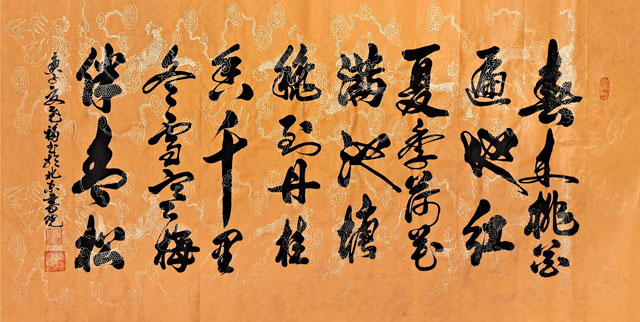 春来桃花
遍地红
夏季荷花
满池塘
秋到丹桂
香千里
冬雪寒梅
伴青松
庚子夏书於北京